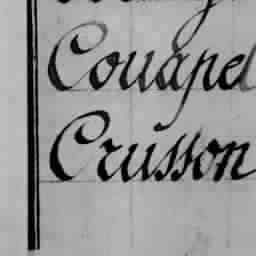 Couapel
Crusson